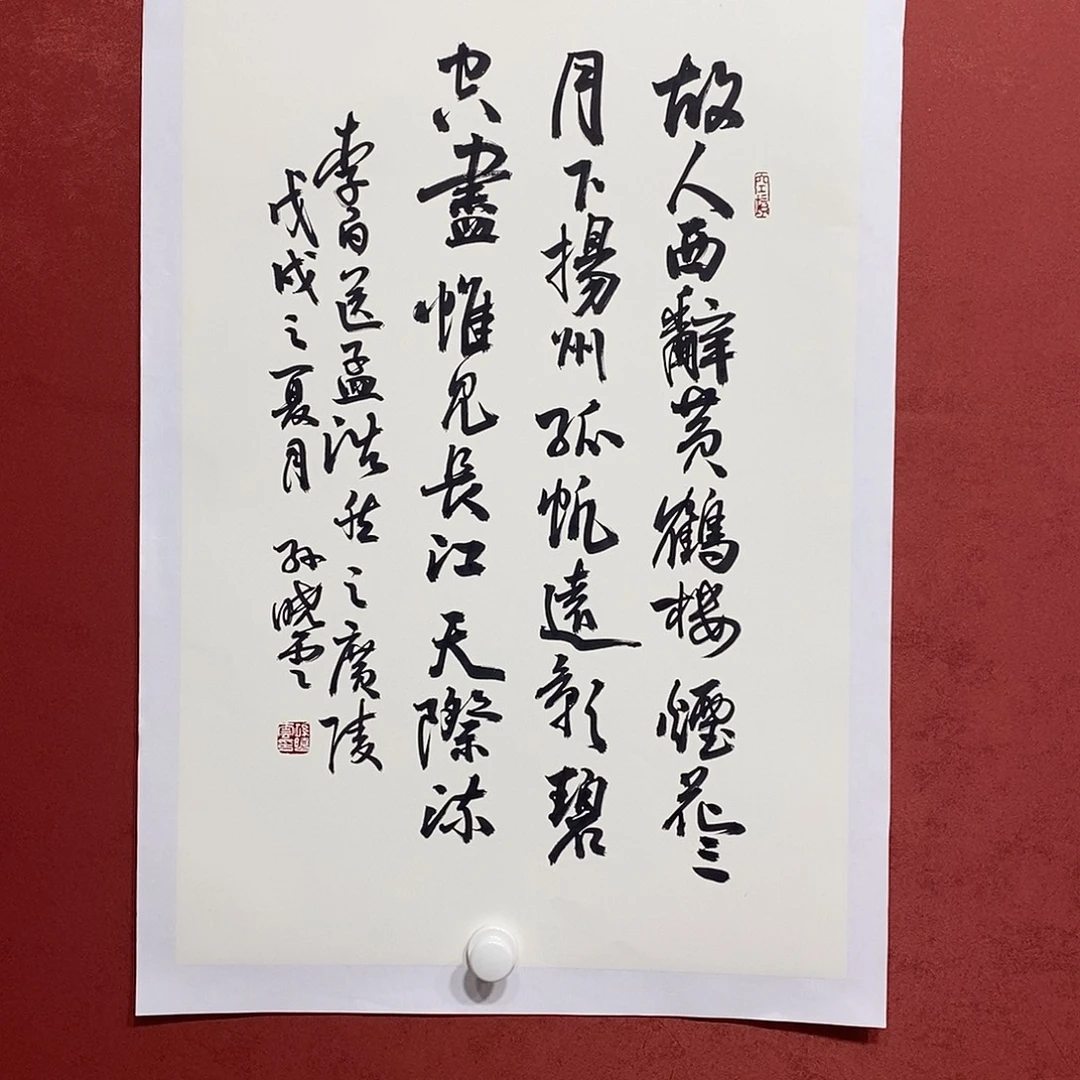 故人西辭黃鶴樓煙花三
月下揚州孤帆遠影碧
空盡惟見長江天際流
李白送孟浩然之廣陵
戊戌之夏月 孫曉雲